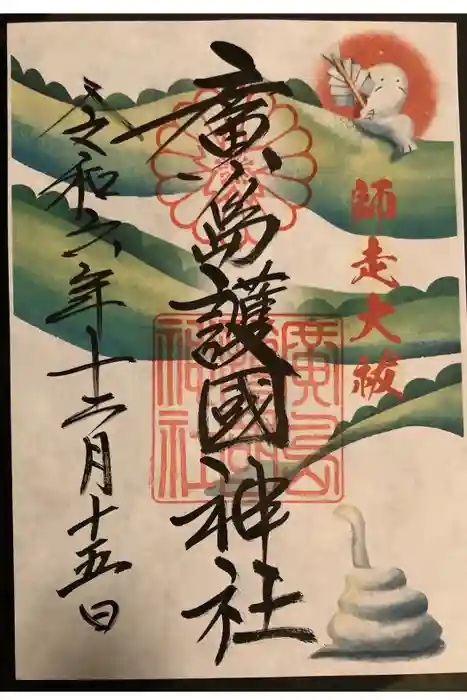 師走大祓
廣島護國神社
廣島護國神社
令和六年十二月十五日